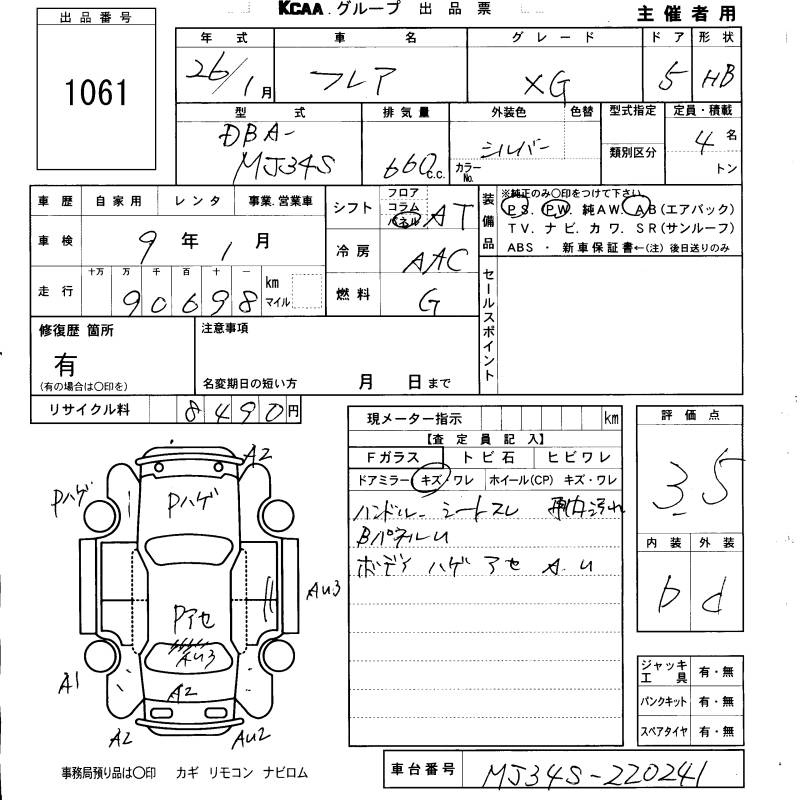 出品番号
1061
KCAA.グループ 出品票
主催者用
年式 車名 グレード ドア 形状
26/1月 フレア XG 5 HB
型式 排気量 外装色 色替 型式指定 定員・積載
DBA-MJ34S 660c.c. シルバー カラーNo. 類別区分 4名 トン
車歴 自家用 レンタ 事業.営業車
車検 9年1月
走行 十万 万 千 百 十 一 km マイル
90698
シフト フロア コラム パネル AT
冷房 AAC
燃料 G
装備品
※純正のみ○印をつけて下さい
P S. P W. 純AW. A B (エアバック)
T V. ナ ビ. カ ワ. S R (サンルーフ)
ABS ・ 新車保証書←(注) 後日送りのみ
セールスポイント
修復歴 箇所
有
(有の場合は○印を)
注意事項
名変期日の短い方 月 日まで
リサイクル料 8490円
現メーター指示 km
【査定員記入】
Fガラス トビ石 ヒビワレ
ドアミラー キズ・ワレ ホイール(CP) キズ・ワレ
ハンドル シートスレ 車内汚れ
BパネルU
ボディ ハゲ アセ A.U
評価点
3.5
内装 外装
b d
ジャッキ工具 有・無
パンクキット 有・無
スペアタイヤ 有・無
A2
Pハゲ
Pハゲ
AU3
Pアセ
AU3
A1
A2
A2
AU2
事務局預り品は○印 カギ リモコン ナビロム
車台番号 MJ34S-220241